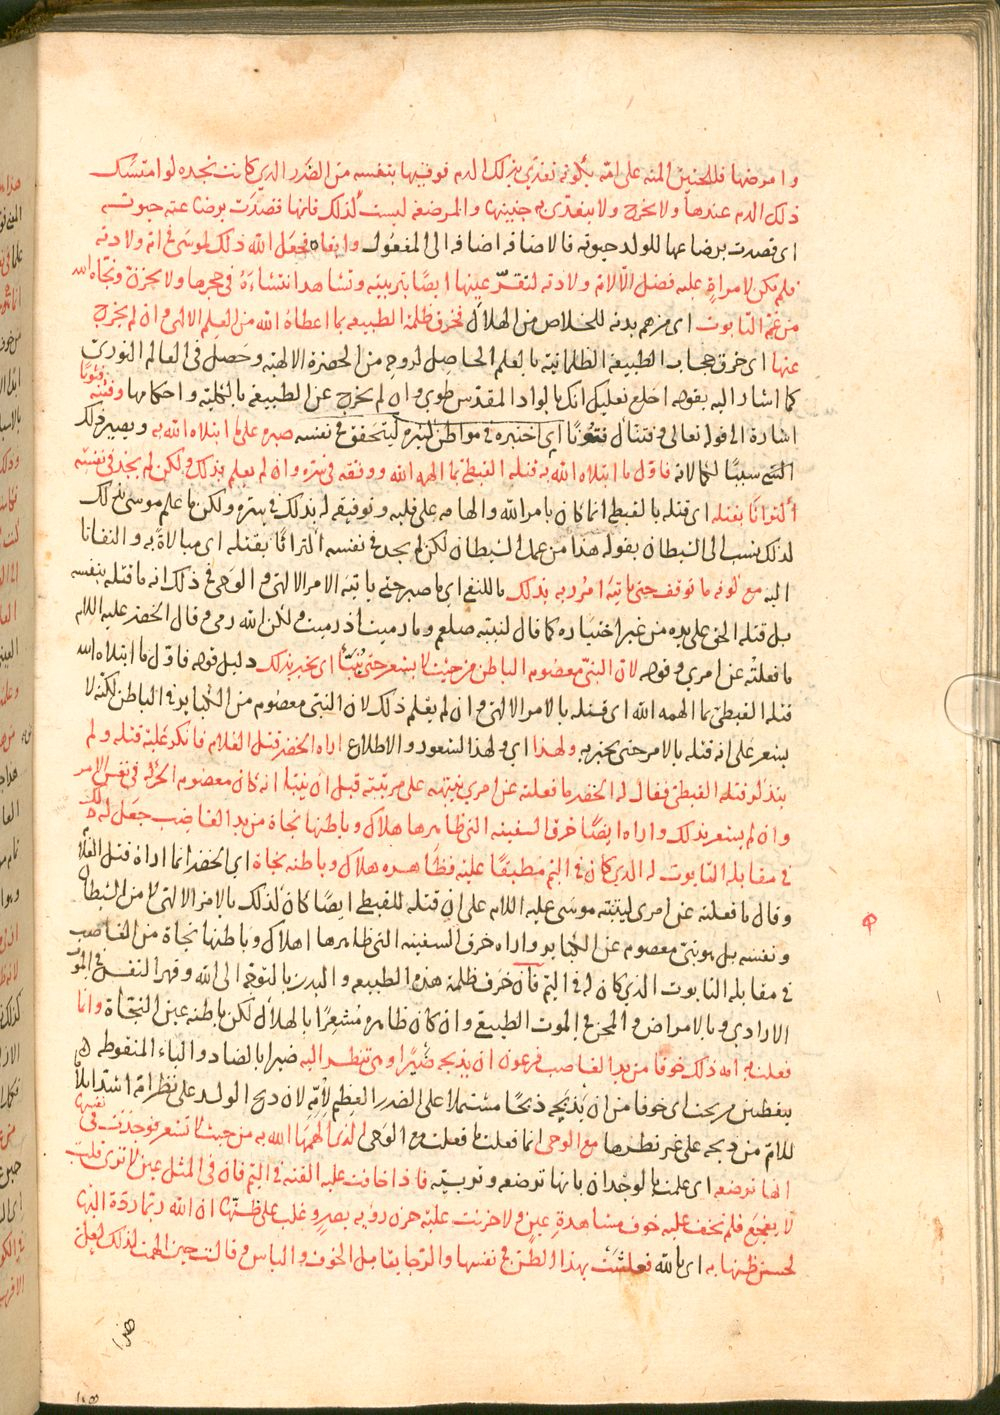 وامرضها فللجنين المنه على امّه بكونه تغذى بذلك الدم فوقيها بنفسه من الضرر الذي كانت تجده لو امتسك
ذلك الدم عندها ولا يخرج ولا يتغذى به جنينها والمرضعة ليست كذلك فانها قصدت برضاعته حيوته
اى قصدت برضاعها للولد حيوته فالاضافة اضافة الى المفعول وابقاءه فجعل الله ذلك لموسى فى امّ ولادته
فلم تكن لامراة عليه فضل الّا لامّ ولادته لتقرّ عينها ايضًا بتربيته وتشاهد انتشاءَهُ فى حجرها ولا تحزن ونجّاه الله
من غمّ التابوت اى من همّ بدنه للخلاص من الهلاك فخرق ظلمة الطبيعة بما اعطاهُ الله من العلم الالهى وان لم يخرج
عنها اى خرق حجاب الطبيعة الظلمانية بالعلم الحاصل لروحه من الحضرة الالهية وحصل فى العالم النوري
كما اشار اليه بقوله اخلع نعليك انك بالواد المقدس طوى وان لم يخرج عن الطبيعة بالكلية واحكامها وفتنه فتونًا
اشارة الى قوله تعالى وفتنّاك فتونًا اى اختبره فى مواطن كثيرة ليتحقق فى نفسه صبره على ما ابتلاه الله به ويصير ذلك
الشئ سببًا لكمالاته فاوّل ما ابتلاه الله به قتله القبطىّ بما الهمه الله ووفقه فى سرّه وان لم يعلم بذلك ولكن لم يجد فى نفسه
اكتراثًا بقتله اى قتله بالقبطى انما كان بامر الله والهامه على قلبه وتوفيقه له بذلك فى سرّه ولكن ما علم موسى بذلك
لذلك نسب الى الشيطان بقوله هذا من عمل الشيطان لكن لم يجد فى نفسه اكتراثًا بقتله اى مبالاة به والتفاتا
اليه مع كونه ما توقف حتى ياتيه امر ربه بذلك ما للنفى اى ما صبر حتى ياتيه الامر الالهى والوحى فى ذلك انه ما قتله بنفسه
بل قتله الحق على يده من غير اختياره كما قال لنبيّه صلعم وما رميت اذ رميت ولكن الله رمى وقال الخضر عليه السلام
ما فعلته عن امري وقوله لان النبىّ معصوم الباطن من حيث لا يشعر حتى يُنبّأ اى يخبر بذلك دليل قوله فاول ما ابتلاه الله
قتله القبطىّ بما الهمه الله اى قتله بالامر الالهى وان لم يعلم ذلك لان النبى معصوم من الكباير فى الباطن لكنّه لا
يشعر على انه قتله بالامر حتى يخبر به ولهذا اى ولهذا الشعور والاطلاع اراه الخضر قتل الغلام فانكر عليه قتله ولم
يتذكر قتله القبطىّ فقال له الخضر ما فعلته عن امري ينبّهه على مرتبته قبل ان ينبّا انه كان معصوم الحركة فى نفس الامر
وان لم يشعر بذلك واراه ايضًا خرق السفينه التى ظاهرها هلاك وباطنها نجاة من يد الغاصب جعل له ذلك
فى مقابلة التابوت له الذي كان فى اليمّ مطبقًا عليه فظاهره هلاك وباطنه نجاة اى الخضر انما اراه قتل الغلام
وقال ما فعلته عن امرى لينبّه موسى عليه السلام على ان قتله للقبطى ايضًا كان كذلك بالامر الالهى لا من الشيطان
ونفسه بل هو نبىّ معصوم عن الكباير واراه خرق السفينه التى ظاهرها اهلاك وباطنها نجاة من الغاصب
فى مقابلة التابوت الذي كان له فى اليمّ فان خرق ظلمة هذه الطبيعه والبدن بالتوجّه الى الله وقهر النفس فى الموت
الارادي وبالامراض والمحن فى الموت الطبيعى وان كان ظاهره مُشعرًا بالهلاك لكن باطنه عين النجاة وانما
فعلت به امّه ذلك خوفا من يد الغاصب فرعون ان يذبحه صَبْرًا وهى تنظر اليه ضبرا بالضاد والباء المنقوطه
للامّ من ذبحه على غير نظرها مع الوحى انما فعلت ما فعلت مع الوحى الذى الهمها الله به من حيث لا تشعر فوجدت فى نفسها
انها ترضعه اى علمت بالوجدان بانها ترضعه وتربيه فاذا خافت عليه القته فى اليمّ فان فى المثل عين لا ترى قلب
لا يفجع فلم تخف عليه خوف مشاهدة عين ولا حزنت عليه حزن روية بصر وغلب على ظنّها ان الله ربما ردّه اليها
لحسن ظنها به اى بالله فعاشت بهذا الظن فى نفسها والرّجا يقابل الخوف والياس وقالت حين الهمت لذلك لعلّ
هذا